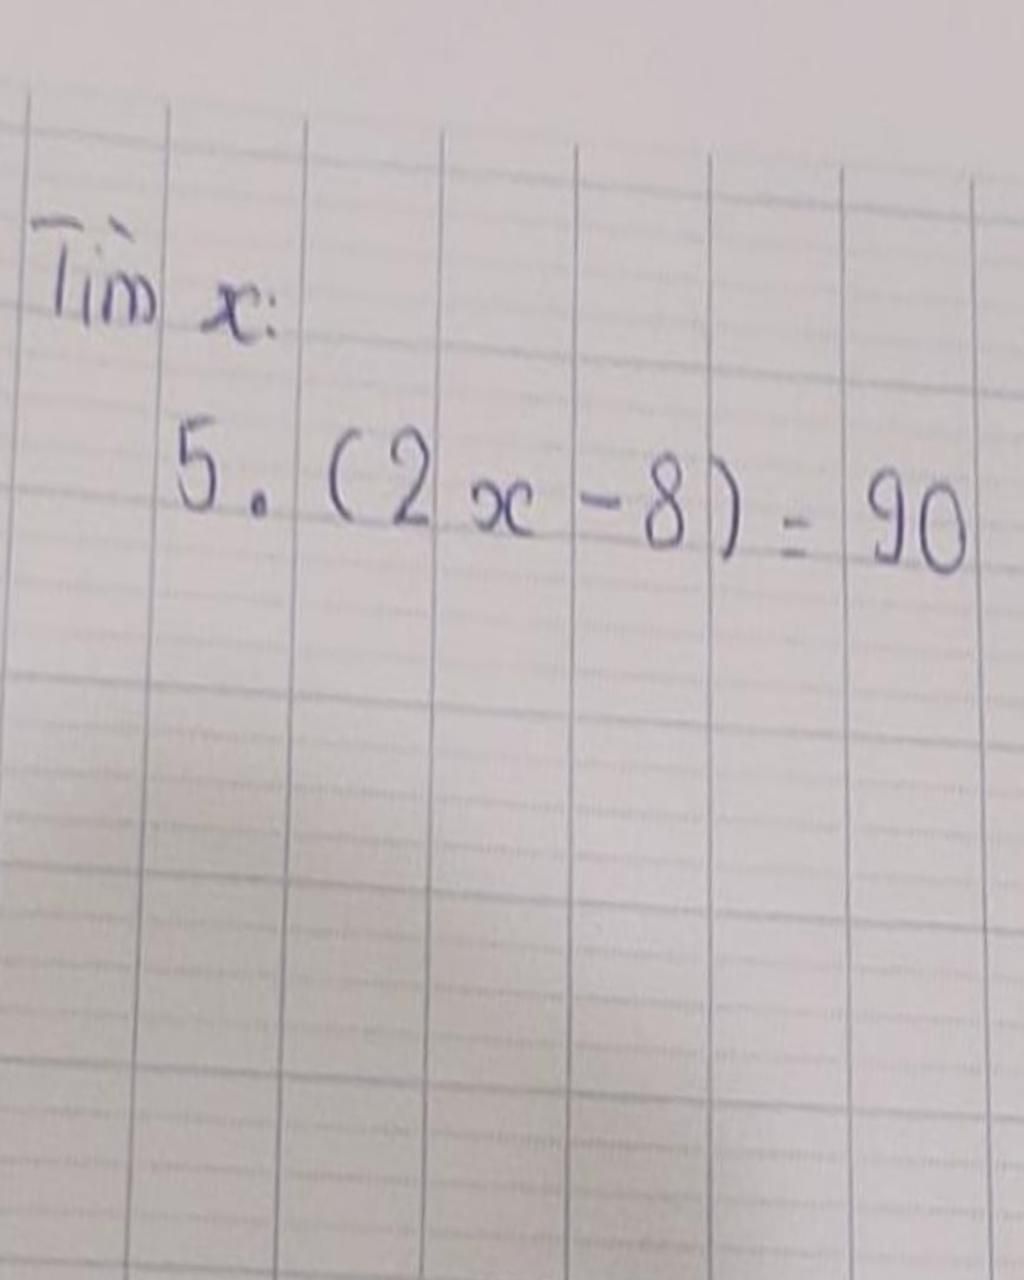 Tìm x:
5. (2x - 8) = 90